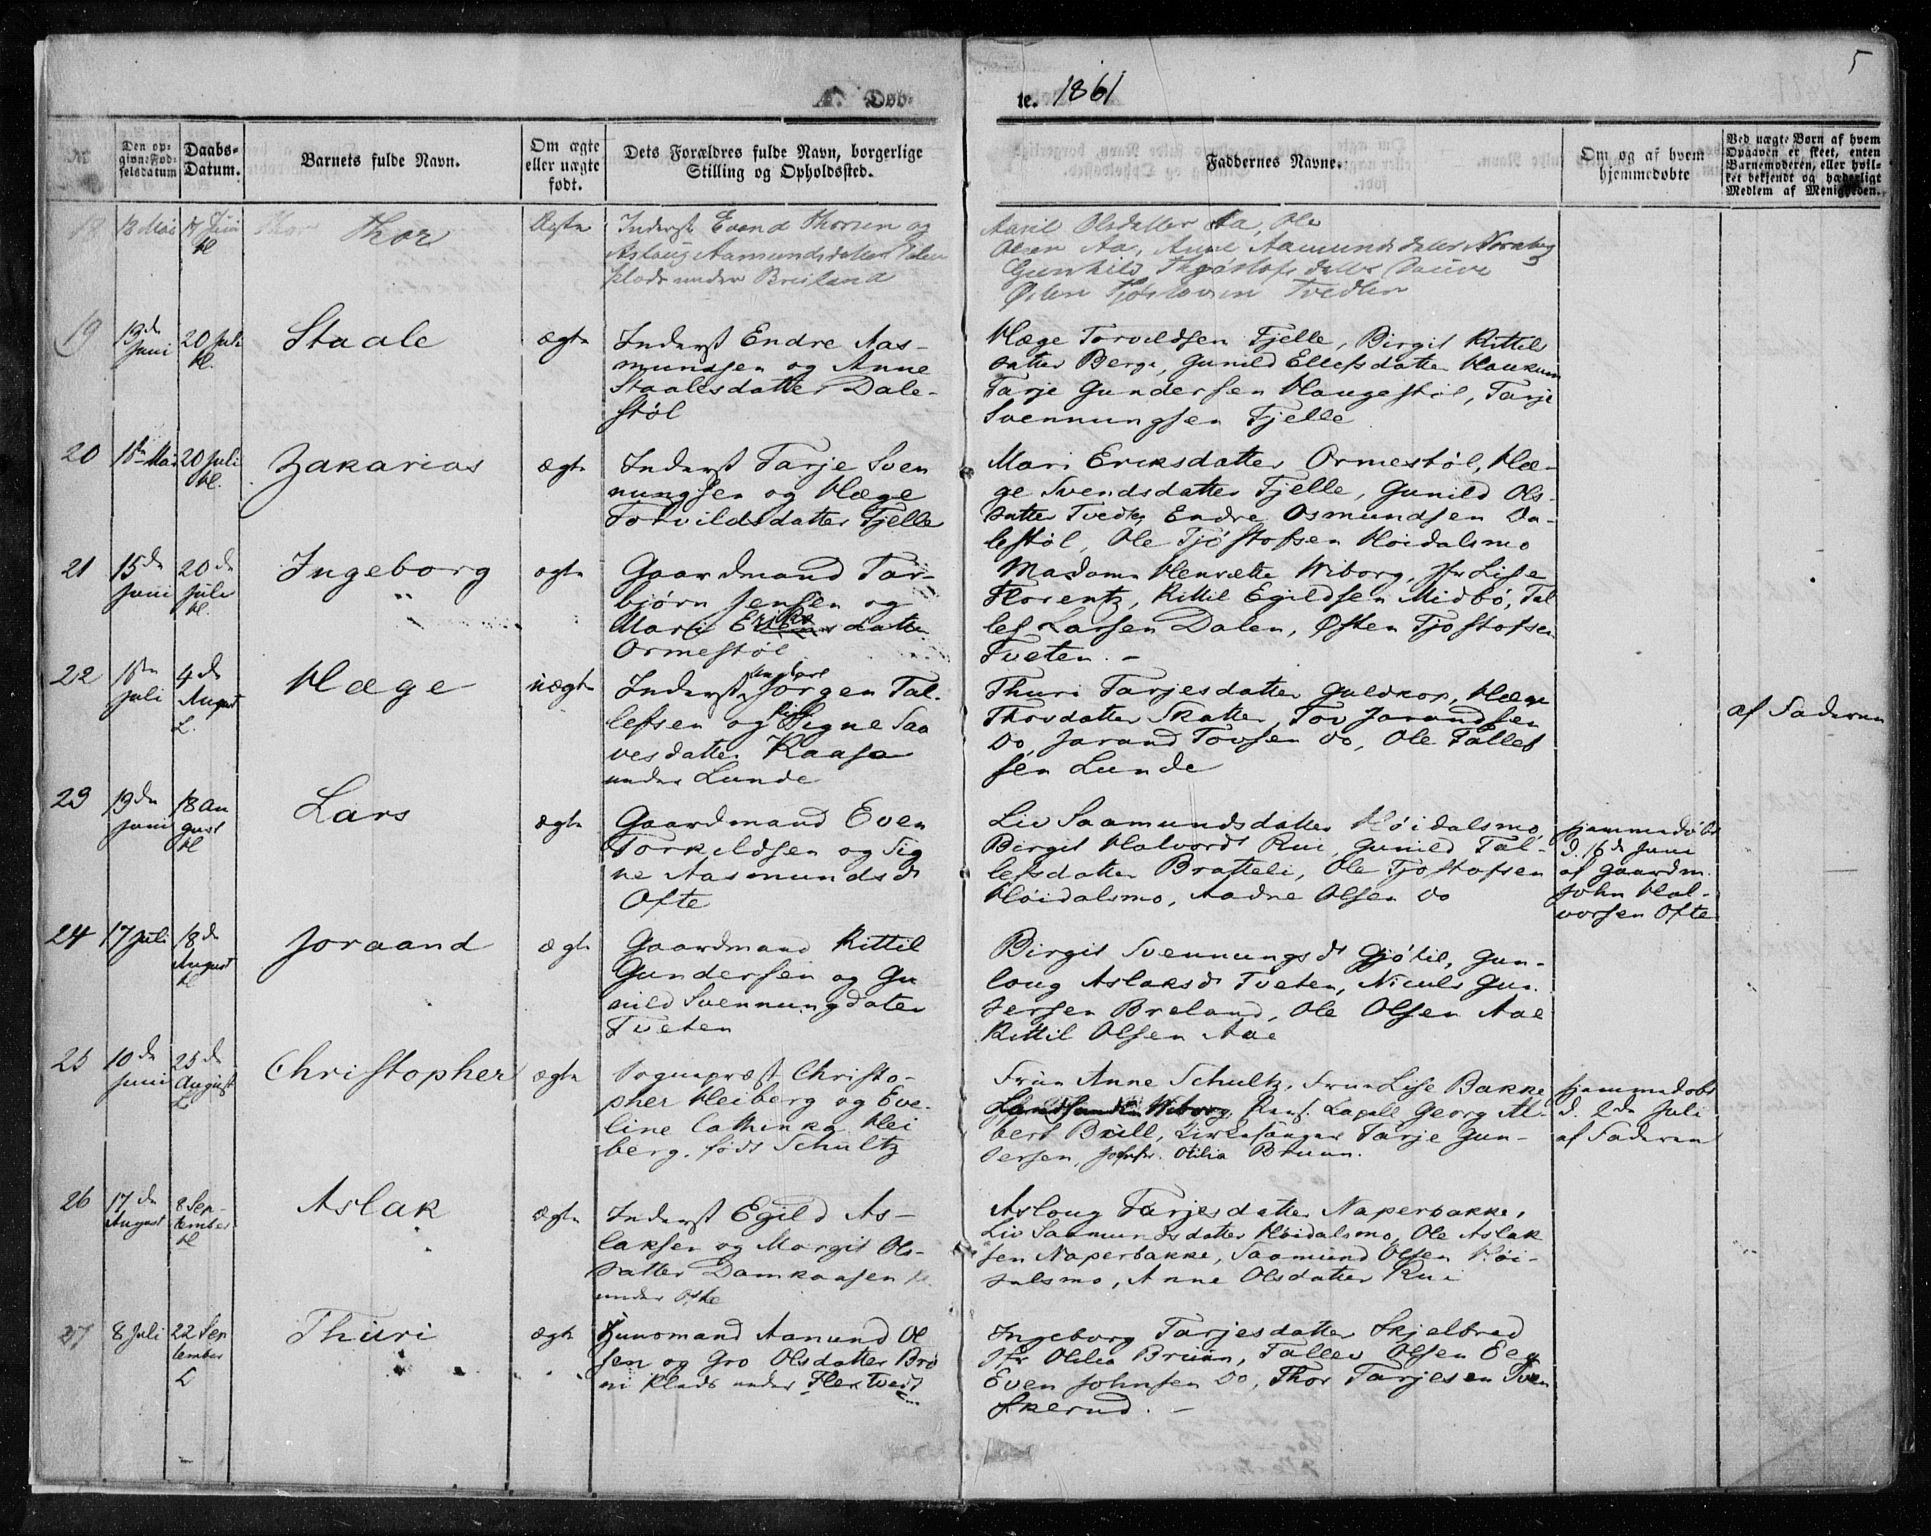 5
A. Døb-
te. 1861
Den op-
givne Fød-
selsdatum
Daabs-
Datum.
Barnets fulde Navn.
Om ægte
eller uægte
født.
Dets Forældres fulde Navn, borgerlige
Stilling og Opholdssted.
Faddernes Navne.
Om og af hvem
hjemmedøbte
Ved uægte Børn af hvem
Opgaven er skeet, enten
Barnemoderen, eller hvil-
ket bekjendt og hæderligt
Medlem af Menigheden.
18
18 Mai
Thor
Thor
Ægte
Inderst Evend Thorsen og
Aslaug Aamundsdatter
Plads under Breiland
Aasil Olsdatter Aa, Ole
Olsen Aa, Aamundsdatter
Gunhild
Tvedten
19
13de
Juni
20 Juli
H.
Staale
ægte
Inderst Endre Aas-
mundsen og Anne
Staalesdatter Dale-
støl
Hæge Torvildsen Fjelle, Birgit Kittils
datter Berge, Gunild Ellefsdatter Haukum
Tarje Gundersen Haugestøl, Tarje
Svennungsen Fjelle
20
Mai
20 Juli
H.
Zakarias
ægte
Inderst Tarje Sven
nungsen og Hæge
Torvildsdatter Fjelle
Mari Eriksdatter Ormestøl, Hæ-
ge Svendsdatter Fjelle, Gunild Ols-
datter Tvedte, Endre Osmundsen Da-
lestøl, Ole Tjøstofsen Høidalsmo
21
15de
Juni
20de
Juli
H.
Ingeborg
ægte
Gaardmand Tar-
bjørn Jensen og
Mari Eriks datter
Ormestøl
Madam Henrætte Wiborg, Jfr Lise
Florentz, Kittil Egildsen Midbö, Tal
lef Larsen Dalen, Østen Tjostofsen
Tveten. -
22
Juli
4de
August
L.
Hæge
uægte
Inderst Ungkarl Jørgen Tal-
lefsen og Pige Signe Saa
vesdatter Kaasa
under Lunde
Thuri Tarjesdatter Guldkop, Hæge
Thorsdatter Skatter, Tov Jarandsen
Do, Jarand Tovsen Do, Ole Tallef
sen Lunde
af Faderen
23
19de
Juni
18 Au
gust
H
Lars
ægte
Gaardmand Even
Torkildsen og Sig
ne Aasmundsd
Ofte
Liv Saamundsdatter Høidalsmo,
Birgit Halvordt Rui, Gunild Tal-
lefsdatter Bratteli, Ole Tjostofsen
Høidalsmo, Aadne Olsen Do
hjemmedøbt
d. 16de Juni
af Gaardm.
John Hal-
vorsen Ofte
24
17 Juli
18de
August
H
Joraand
ægte
Gaardmand Kittil
Gundersen og Gu
nild Svennungdatter
Tveten
Birgit Svennungsdt Gjøtil, Gun-
loug Aslaksdt Tveten, Niculs Gun
dersen Breland, Ole Olsen Aae
Kittil Olsen Aae
25
10de
Juni
25de
August
L
Christopher
ægte
Sognepræst Christo-
pher Heiberg og Eve-
line Cathinka Hei
berg, født Schultz
Fruu Anne Schultz, Fruu Lise Bakke
Wiborg, Pers. Capell Georg Al-
bert Büll, Kirkesanger Tarje Gun-
dersen, Jomfr. Otilia Bruun.
hjemmedøbt
d. 2de Juli
af Faderen
26
17de
August
8 Sep-
tember
H
Aslak
ægte
Inderst Egild As-
laksen og Margit Ols-
datter Damkaasen
under Ofte
Asloug Tarjesdatter Naperbakke,
Liv Saamundsdatter Høidalsmo, Ole Aslak
sen Naperbakke, Saamund Olsen Høi-
dalsmo, Anne Olsdatter Rui
27
8 Juli
22 Sep
tember
L
Thuri
ægte
Huusmand Aamund Ol
sen og Gro Olsdatter Bro
ni Plads under
Ingeborg Tarjesdatter Skjelbred
Jfr Otilia Brüün, Tallev Olsen Eeg
Even Johnsen Do, Thor Tarjesen Tven
skerud. -